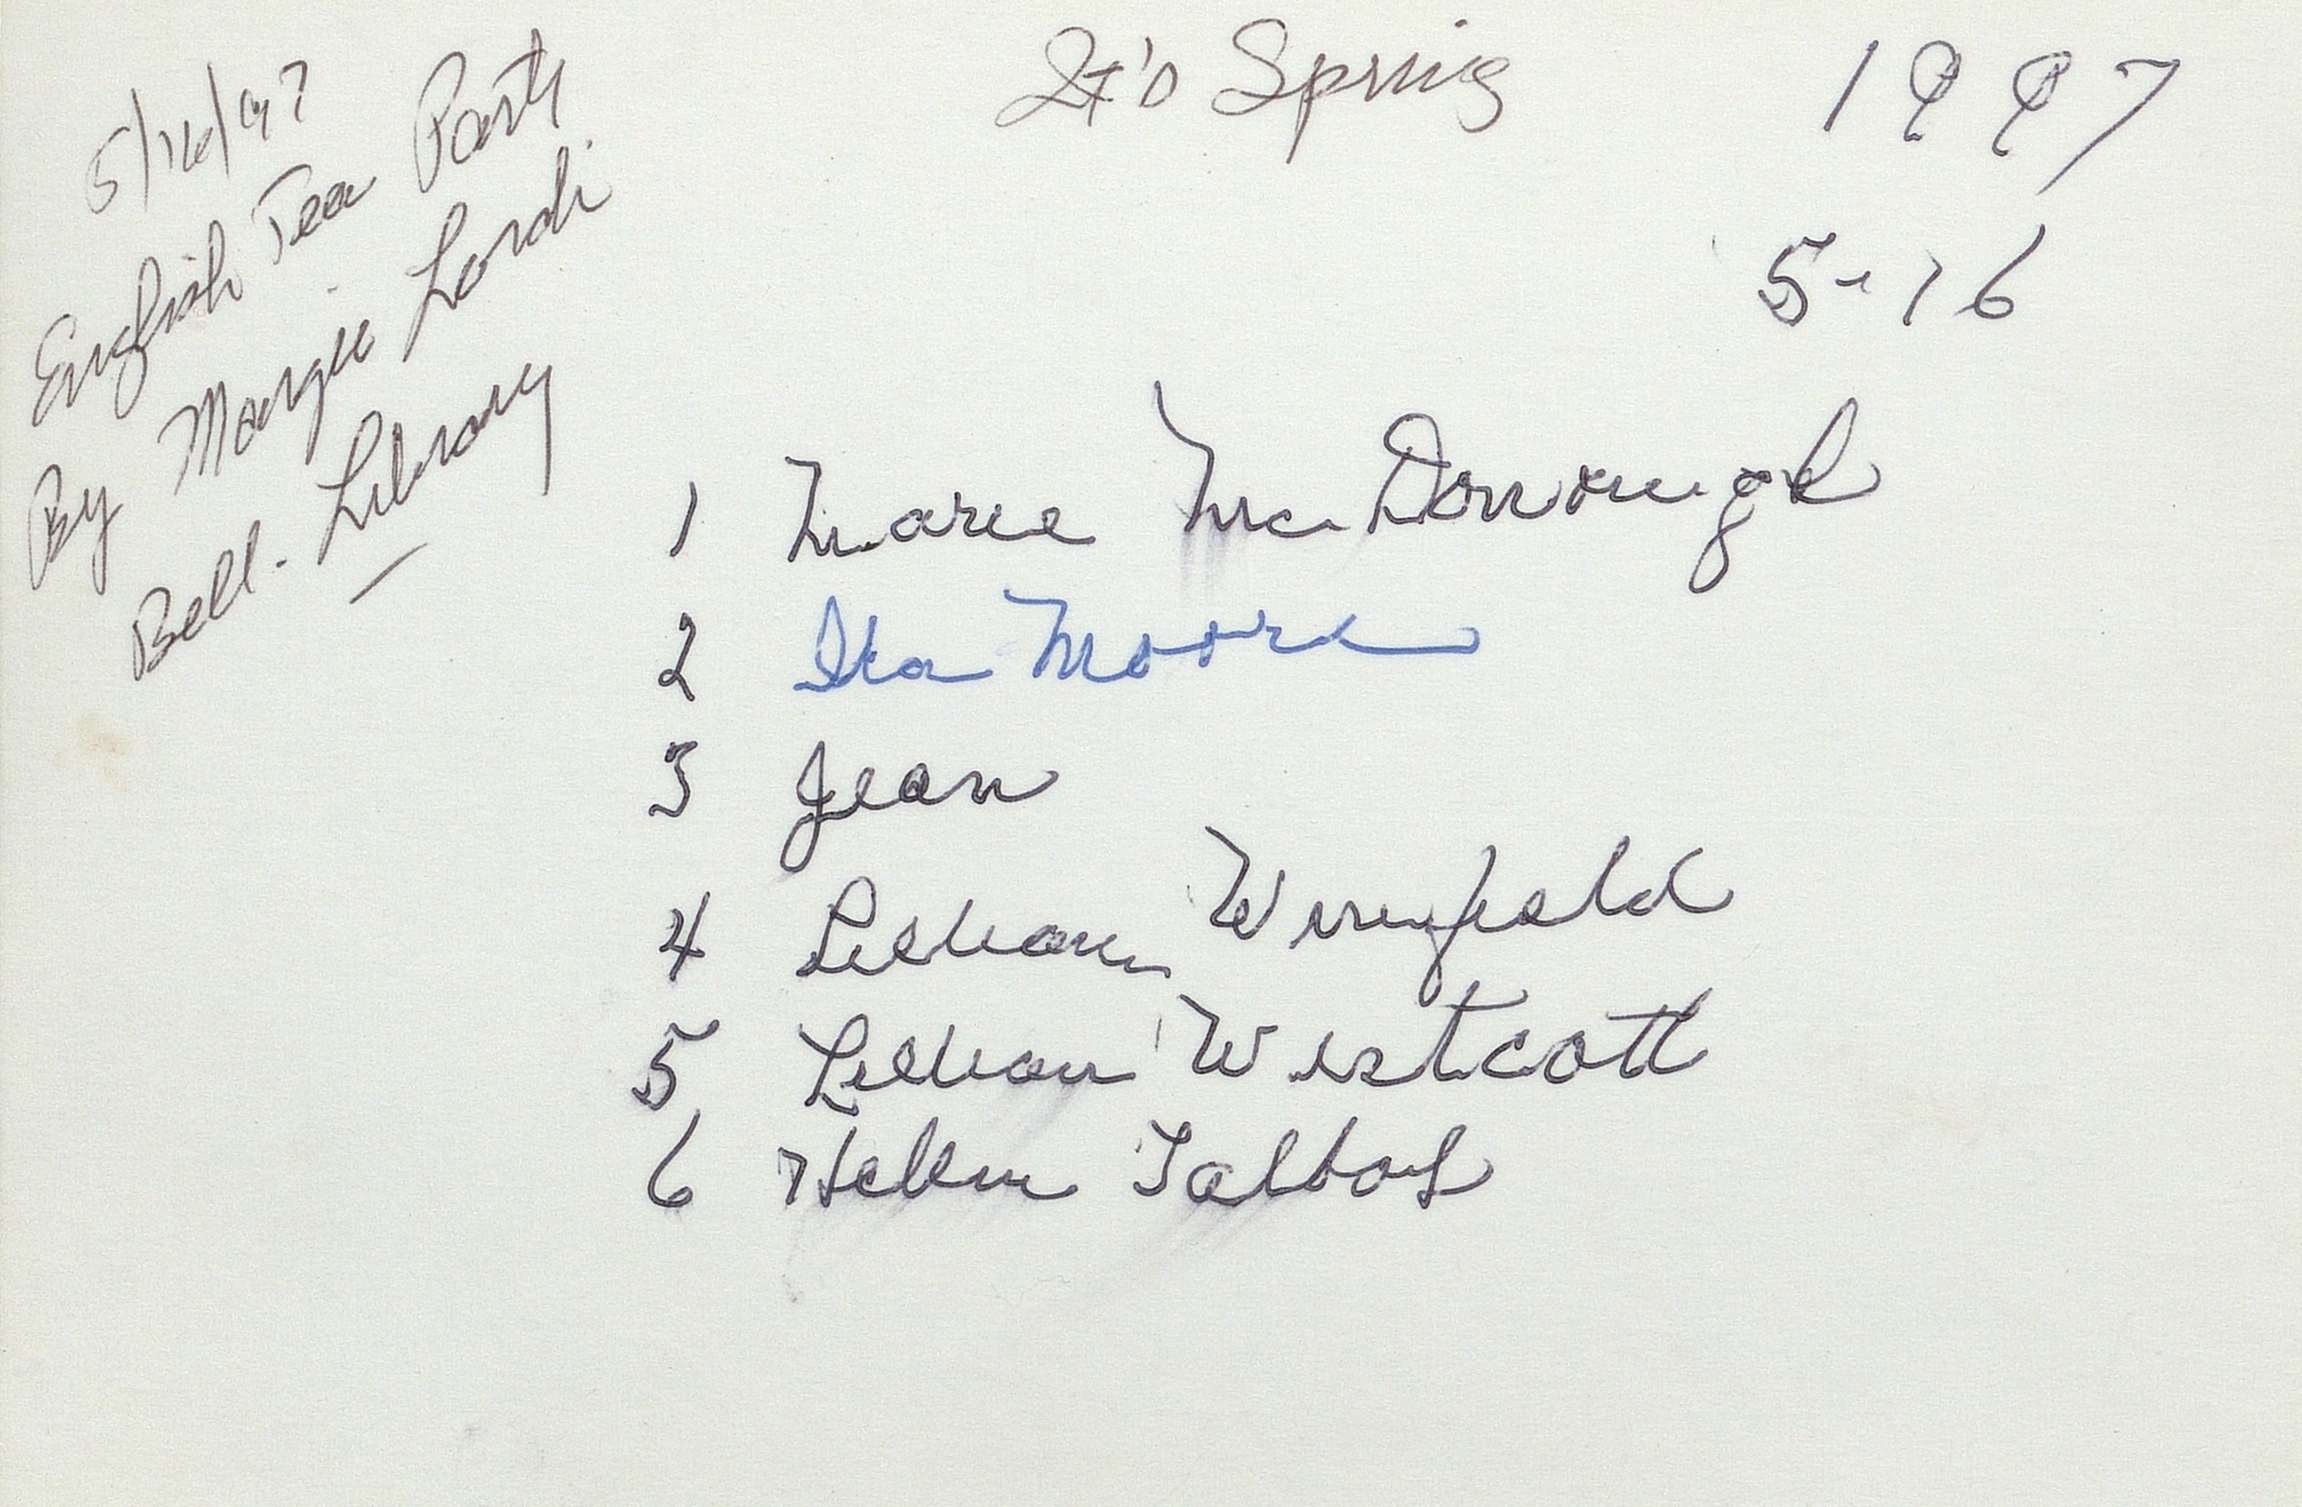 It's Spring 1997
5-16
5/16/97
English Tea Party
By Margie Lordi
Bell. Library
1 Marie McDonough
2 Ita Moore
3 Jean
4 Lillian Winfield
5 Lillian Westcott
6 Helen Talbot